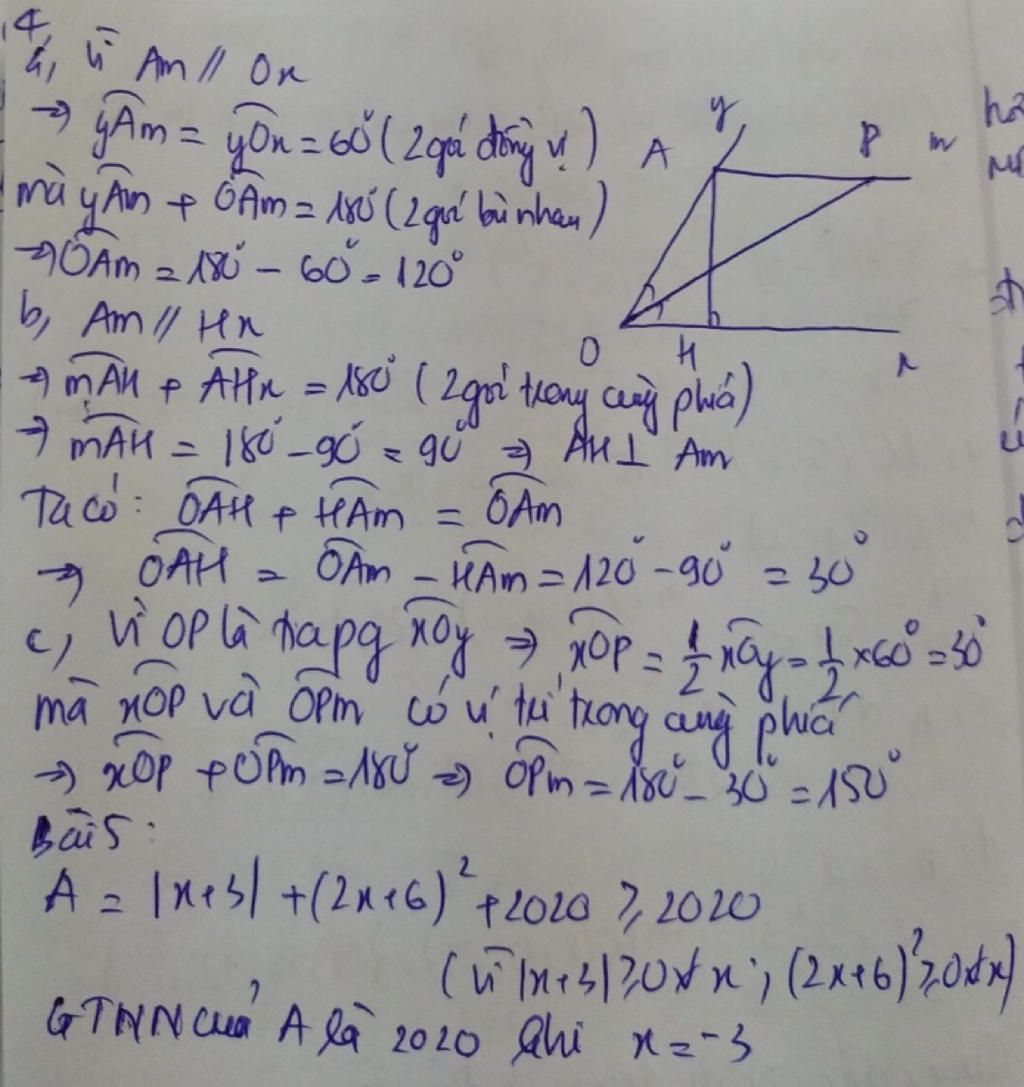 4,
a, vì Am // Ox
⇒ yAm = yOx = 60° (2 góc đồng vị)
mà yAm + OAm = 180° (2 góc bù nhau)
⇒ OAm = 180° - 60° = 120°
b, Am // Hx
⇒ mAH + AHx = 180° (2 góc trong cùng phía)
⇒ mAH = 180° - 90° = 90° ⇒ AH ⊥ Am
Ta có: OAH + HAm = OAm
⇒ OAH = OAm - HAm = 120° - 90° = 30°
c, Vì OP là tia pg xOy ⇒ xOP = 1/2 xOy = 1/2 × 60° = 30°
mà xOP và OPm có vị trí trong cùng phía
⇒ xOP + OPm = 180° ⇒ OPm = 180° - 30° = 150°
Bài 5:
A = |x+3| + (2x+6)² + 2020 ≥ 2020
(vì |x+3| ≥ 0 ∀x ; (2x+6)² ≥ 0 ∀x)
GTNN của A là 2020 khi x = -3
y
A P m
O H x